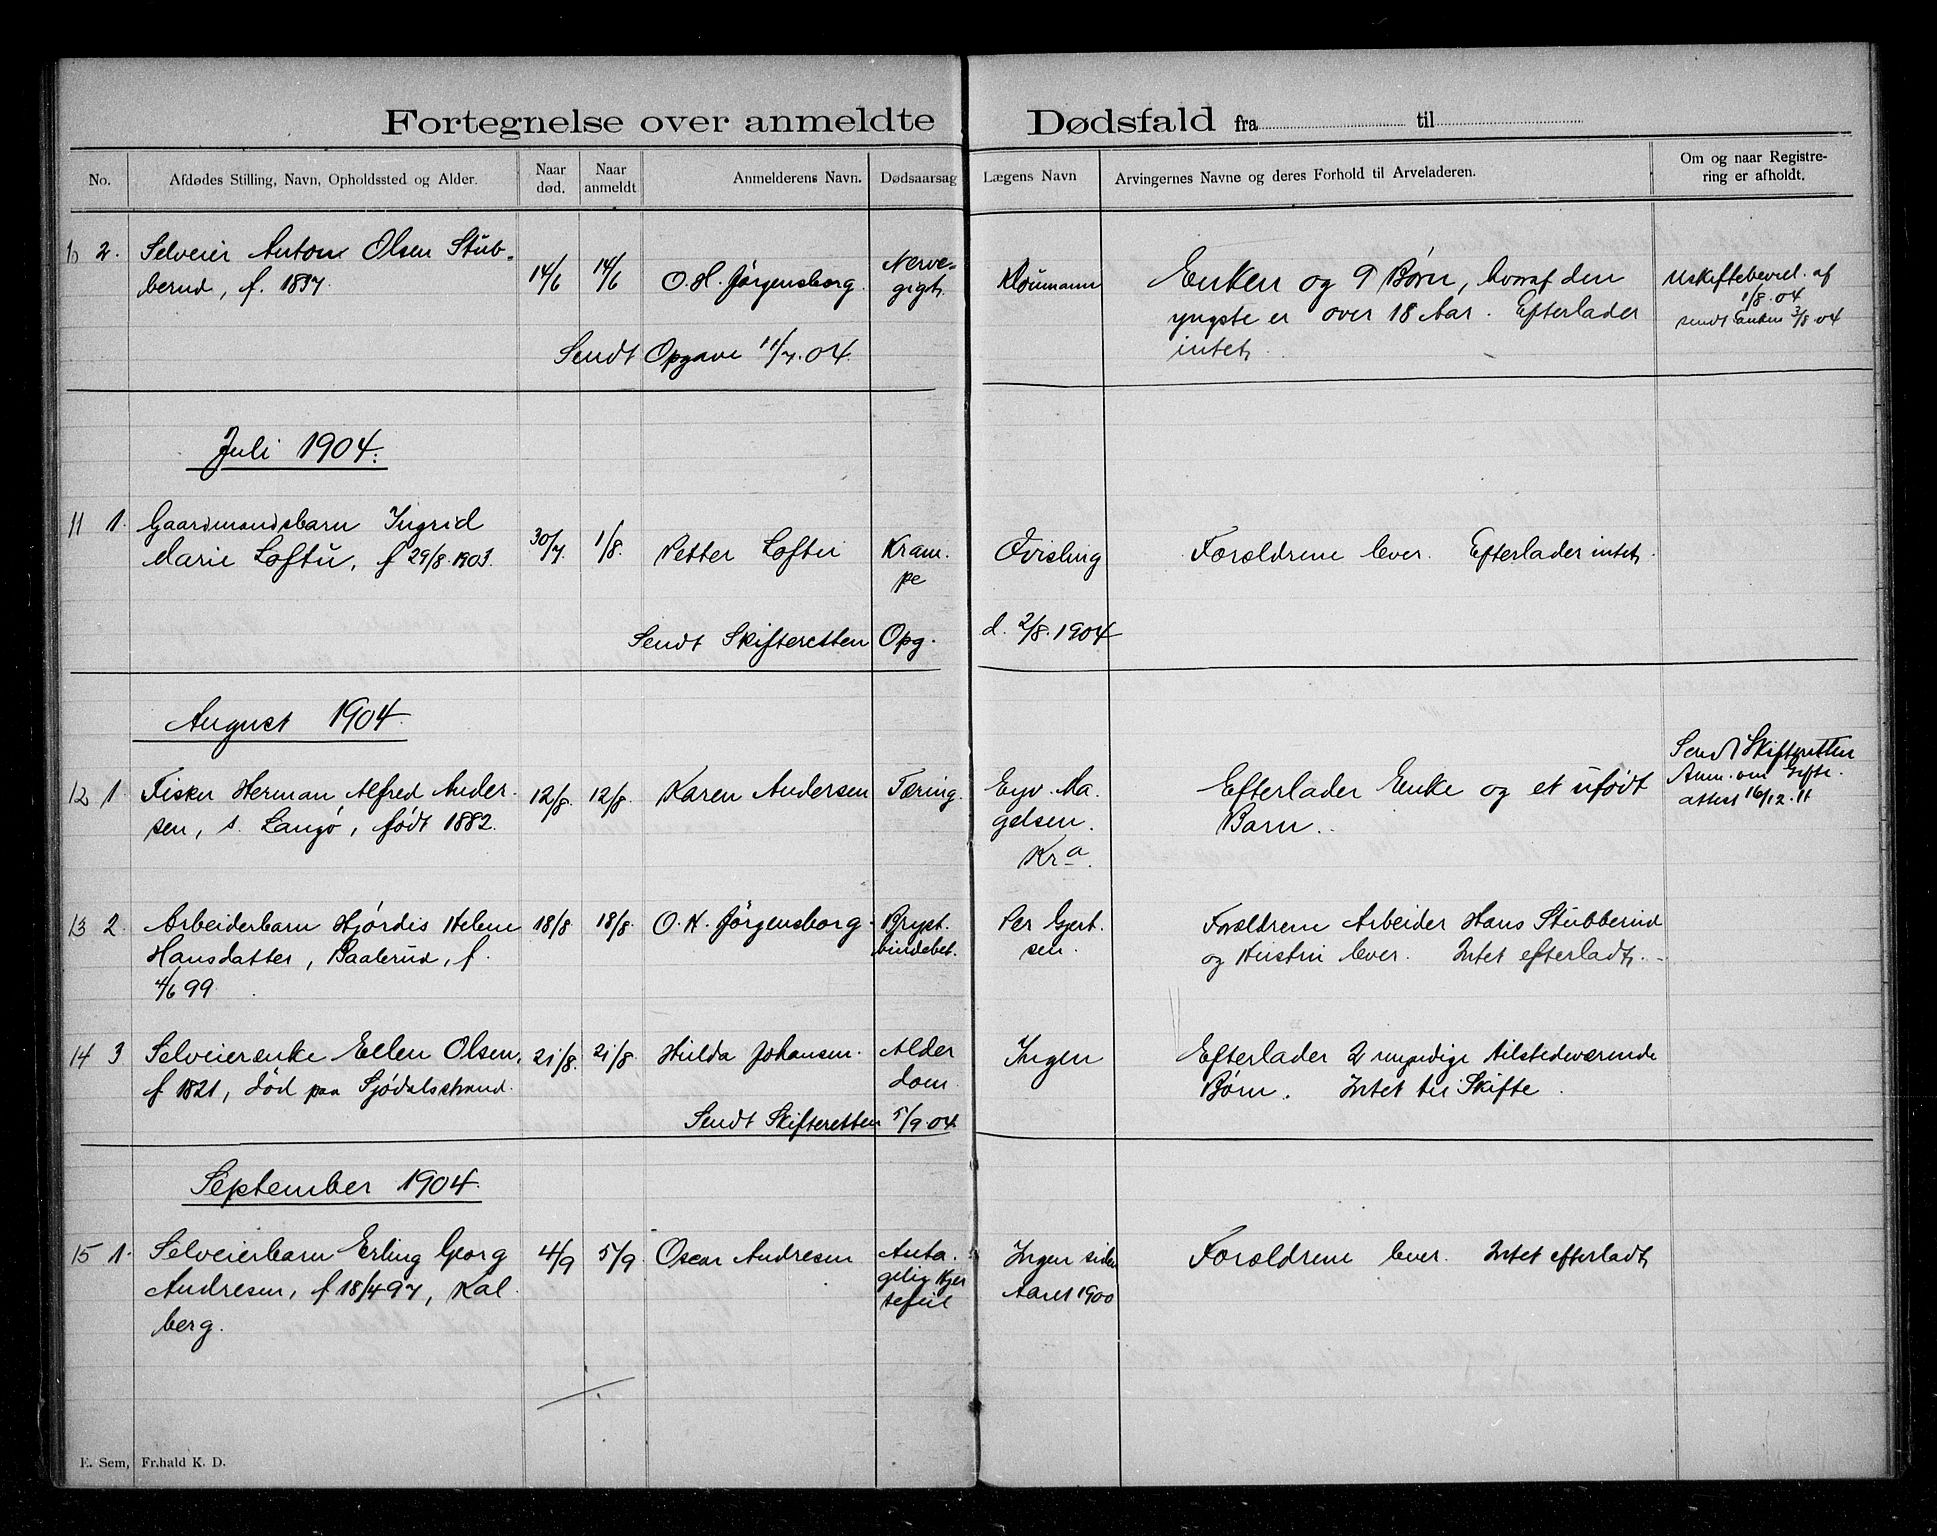 Fortegnelse over anmeldte Dødsfald fra til
No. Afdødes Stilling, Navn, Opholdssted og Alder. Naar død. Naar anmeldt Anmelderens Navn. Dødsaarsag Lægens Navn Arvingernes Navne og deres Forhold til Arveladeren. Om og naar Registrering er afholdt.
10 2. Selveier Anton Olsen Stub- 14/6 14/6 O. H. Jørgensborg Nerve- Enken og 9 Børn, hvoraf den Uskiftebevil. af
bernd, f. 1837. gigt. yngste er over 18 Aar. Efterlader 1/8 04
intet. sendt Enken 3/8 04
Sendt Opgave 11/7.04.
Juli 1904.
11 1. Gaardmandsbarn Ingrid 30/7. 1/8. Petter Loftu Kram- Qvisling Forældrene lever. Efterlader intet.
Marie Loftu, f 29/8.1903. pe
Sendt Skifteretten Opg. d. 2/8.1904
August 1904.
Sendt Skifteretten
12 1 Fisker Herman Alfred Ander- 12/8. 12/8. Karen Andersen Tæring. Eyv. Ma- Efterlader Enke og et ufødt Anm. om Gifte.
sen, s. Langø, født 1882. gelsen. Barn. attest 16/12.11
Kra.
13 2. Arbeiderbarn Hjørdis Helene 18/8 18/8. O. H. Jørgensborg. Bryst- Per Gjert- Forældrene Arbeider Hans Stubberud
Hansdatter, Baalerud, f. hindebet. sen. og Hustru lever. Intet efterladt.
4/6 99.
14 3 Selveierenke Ellen Olsen, 21/8. 21/8 Hulda Johansen. Alder Ingen Efterlader 2 myndige tilstedeværende
f 1821, død paa Sjødalsstrand. dom. Børn. Intet til Skifte.
Sendt Skifteretten 5/9.04
September 1904.
15 1. Selveierbarn Erling Georg 4/9 5/9 Oscar Andresen Anta- Ingen siden Forældrene lever. Intet efterladt
Andresen, f 18/4 97, Kal- gelig Hjer Aaret 1900
berg. tefeil
E. Sem, Fr.hald K. D.